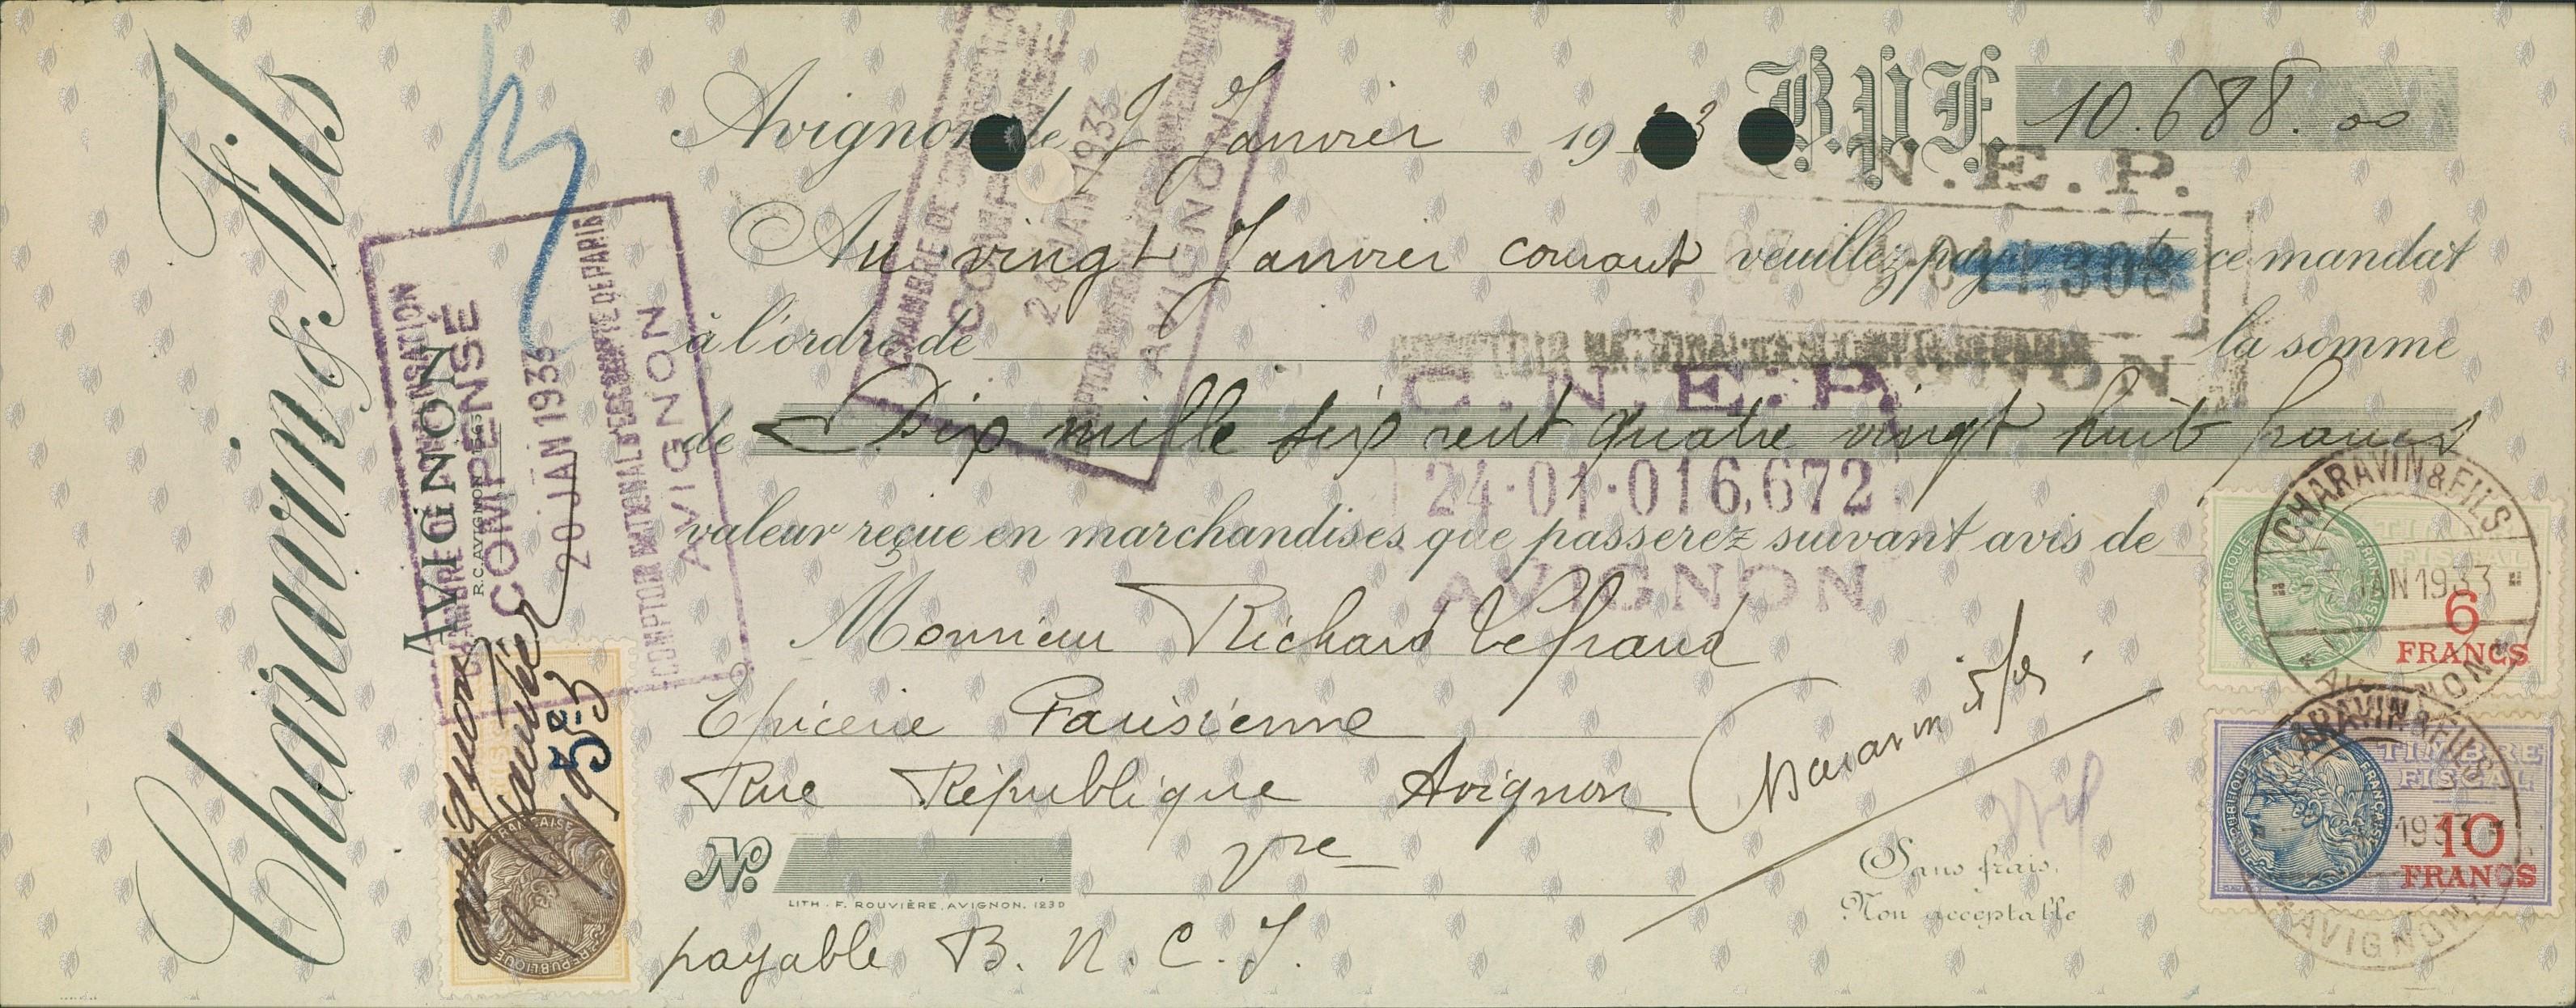 Charavin & Fils
AVIGNON
R.C. AVIGNON
Avignon, le 7 Janvier 19 3
B.P.F. 10.688.00
C.N.E.P.
Au vingt Janvier courant veuillez payer ce mandat
011.308
à l'ordre de la somme
COMPTOIR NATIONAL D'ESCOMPTE DE PARIS
AVIGNON
C.N.E.P.
de Dix mille six cent quatre vingt huit francs
24·01·016,672
valeur reçue en marchandises que passerez suivant avis de
AVIGNON
Monsieur Richard Lefranc
Epicerie Parisienne
Rue République Avignon
Charavin & Fils
No. vre
LITH. F. ROUVIÈRE, AVIGNON. 1230
Sans frais,
Non acceptable
payable B. N. C. I.
CHAMBRE DE COMPENSATION
COMPENSÉ
20 JAN 1933
COMPTOIR NATIONAL D'ESCOMPTE DE PARIS
AVIGNON
CHAMBRE DE COMPENSATION
24 JAN 1933
COMPTOIR NATIONAL D'ESCOMPTE DE PARIS
AVIGNON
Avignon
7 Janvier
1933
5c
RÉPUBLIQUE FRANÇAISE
CHARAVIN & FILS
7 JAN 1933
AVIGNON
RÉPUBLIQUE FRANÇAISE
TIMBRE FISCAL
6 FRANCS
CHARAVIN & FILS
1933
AVIGNON
RÉPUBLIQUE FRANÇAISE
TIMBRE FISCAL
10 FRANCS